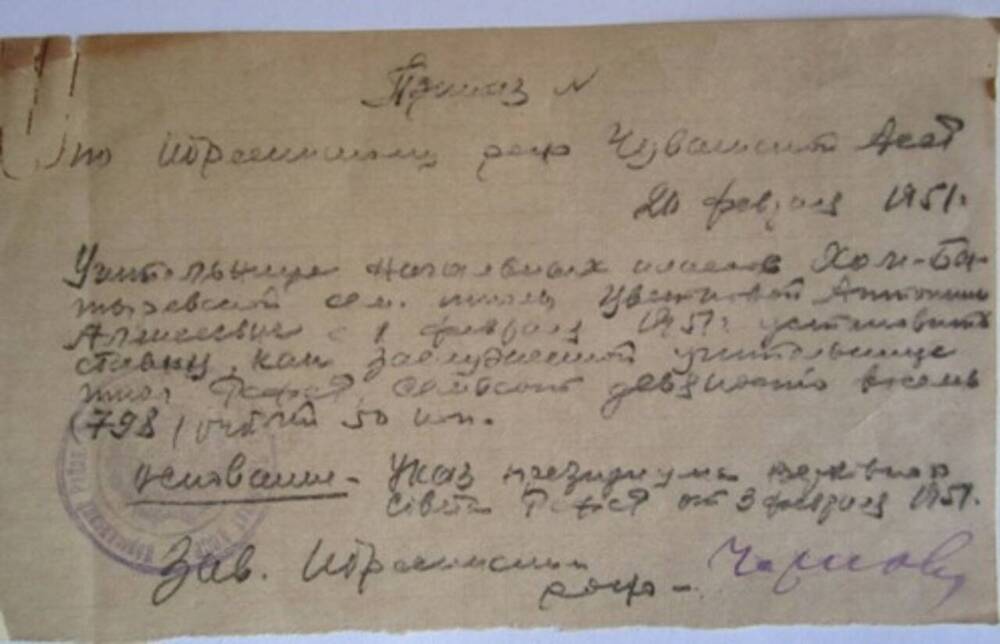 Приказ №
по Ибресинскому роно Чувашской АССР
20 февраля 1951г.
Учительнице начальных классов Хом-Ба-
тыревской сем. школы Цветковой Антонине
Алексеевне с 1 февраля 1951г. установить
ставку, как заслуженной учительнице
школ РСФСР, семьсот девяносто восемь
(798) рублей 50 коп.
Основание - Указ президиума верховного
Совета РСФСР от 3 февраля 1951.
Зав. Ибресинским
роно -